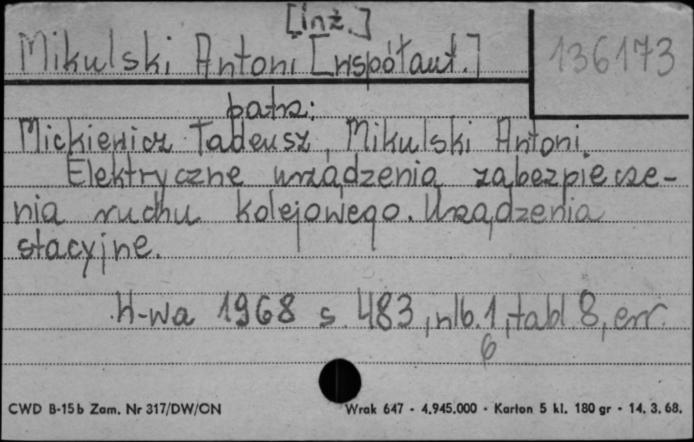 [inż.]
Mikulski Antoni [współaut.]
136173
patrz:
Mickiewicz Tadeusz, Mikulski Antoni.
Elektryczne urządzenia zabezpiecze-
nia ruchu kolejowego. Urządzenia
stacyjne.
W-wa 1968 s. 483, nlb. 1, tabl. 8, err.
6
CWD B-15b Zam. Nr 317/DW/ON
Wrak 647 - 4.945.000 - Karton 5 kl. 180 gr - 14. 3. 68.